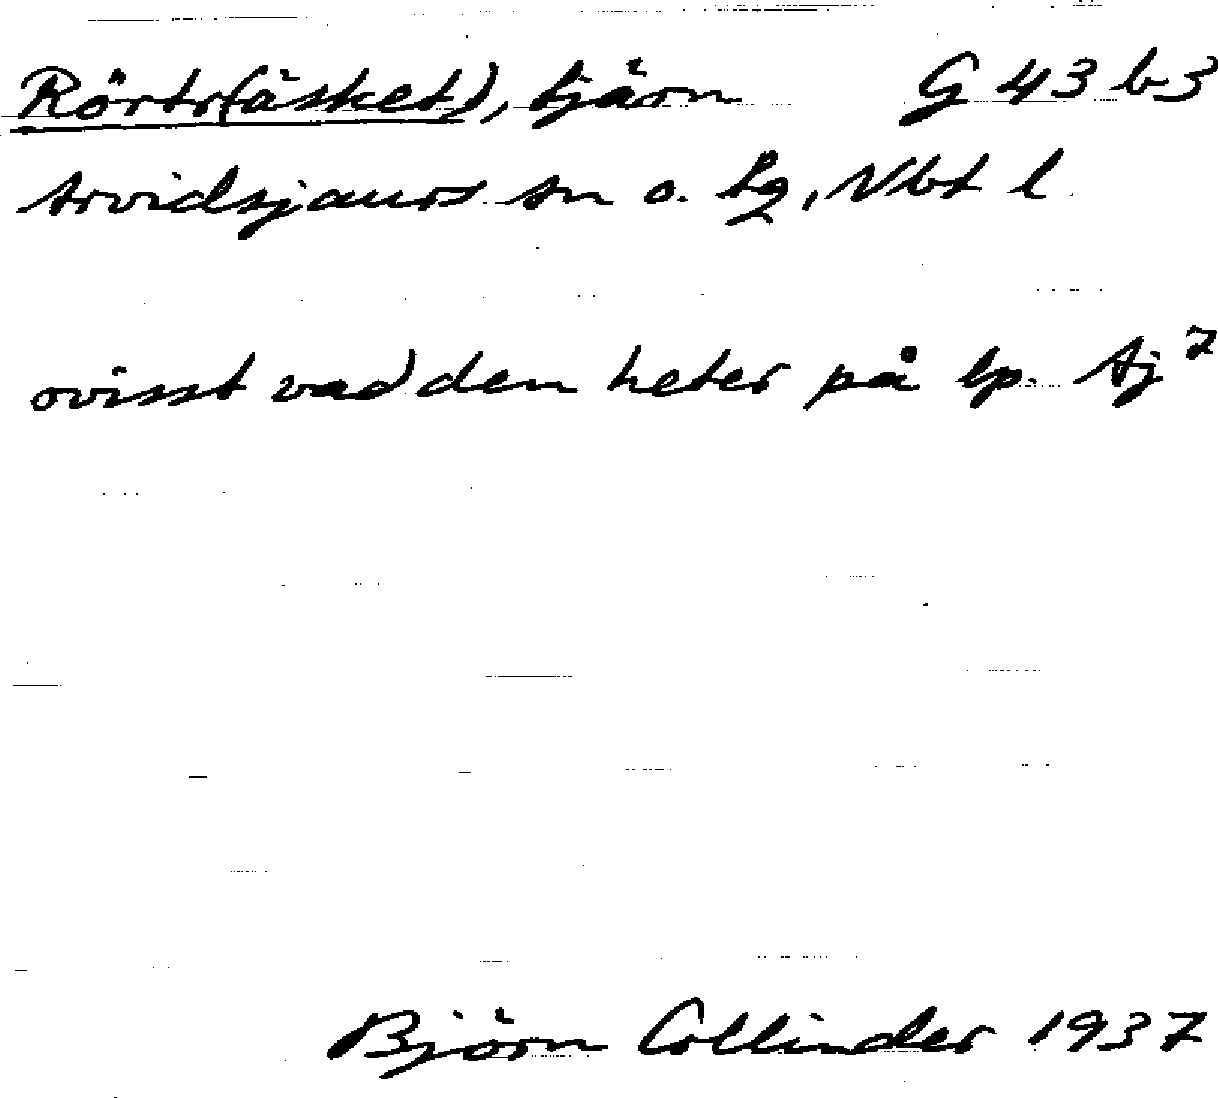 Rörtr(äsket), tjärn G 43 b3
Arvidsjaurs sn o. tg, Vbt l
ovisst vad den heter på lp. Aj 7
Björn Collinder 1937